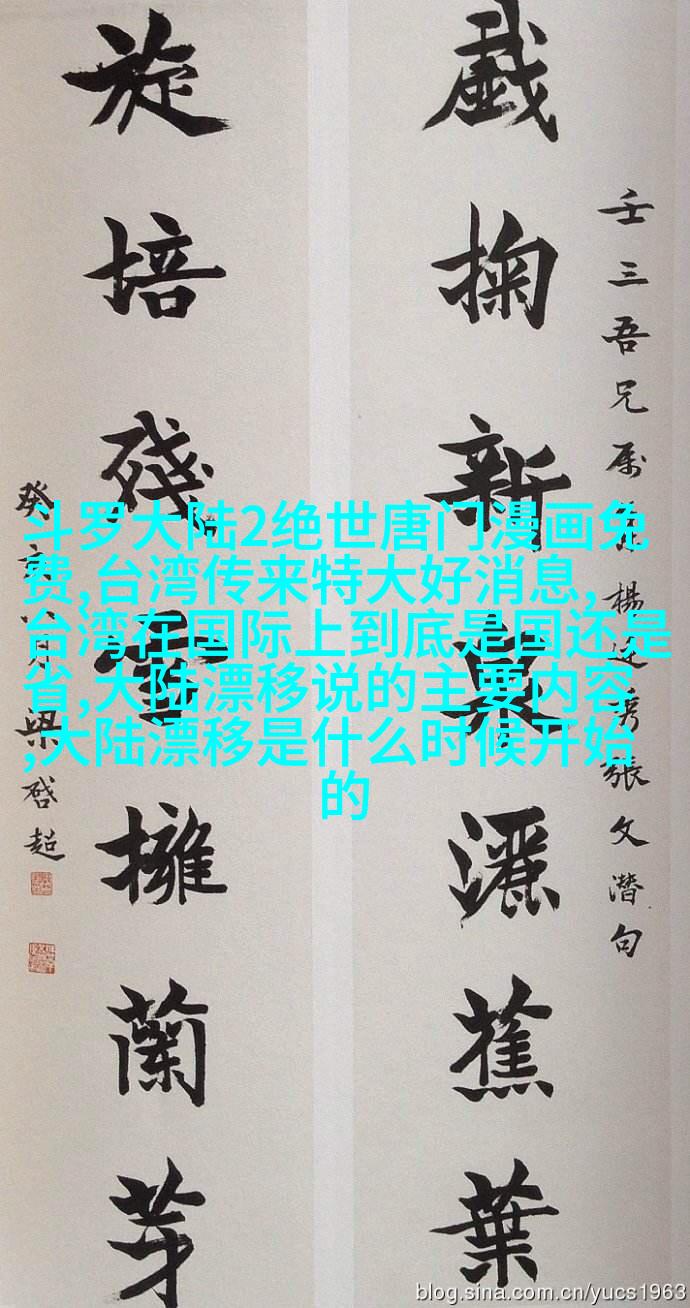 壬三吾兄屬楊廷秀張文潛句
戲掬新泉灑蕉葉
旋培殘雪擁蘭芽
癸亥八月梁啓超
斗罗大陆2绝世唐门漫画免
费,台湾传来特大好消息,
台湾在国际上到底是国还是
省,大陆漂移说的主要内容
,大陆漂移是什么时候开始
的
blog.sina.com.cn/yucs1963